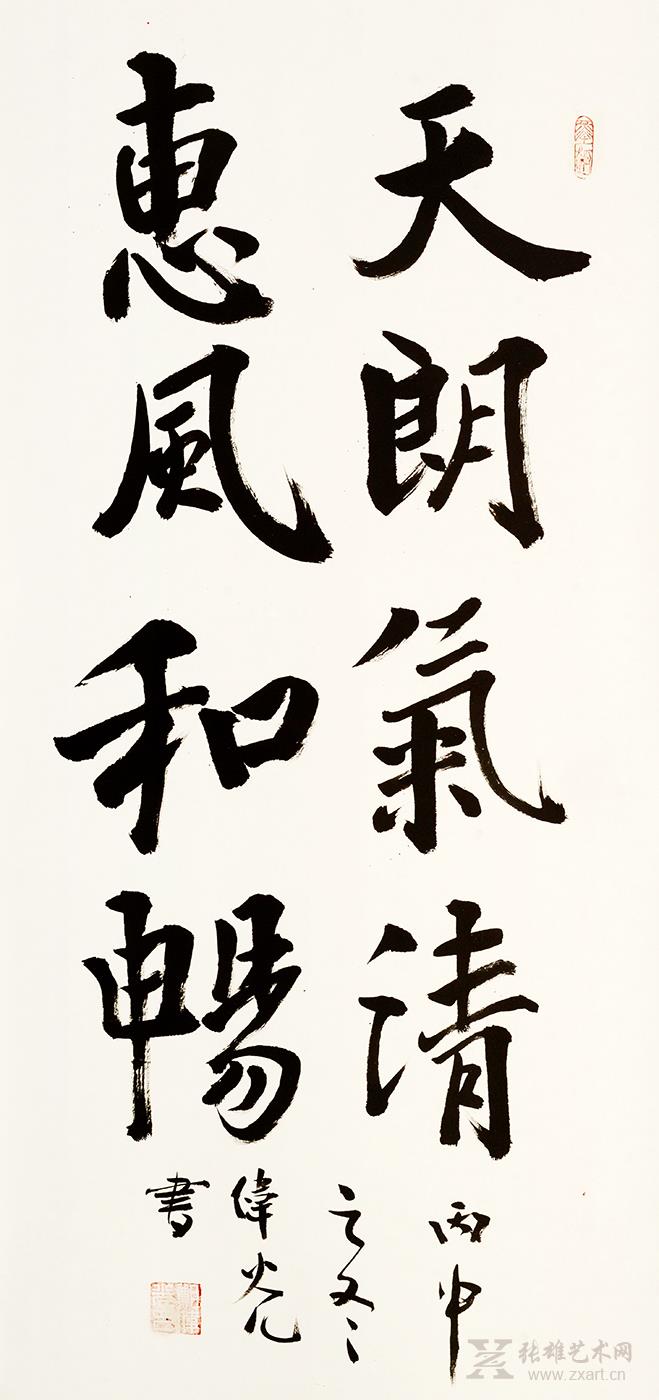 天朗氣清
惠風和暢
丙申
之冬
偉光
書
张雄艺术网
www.zxart.cn